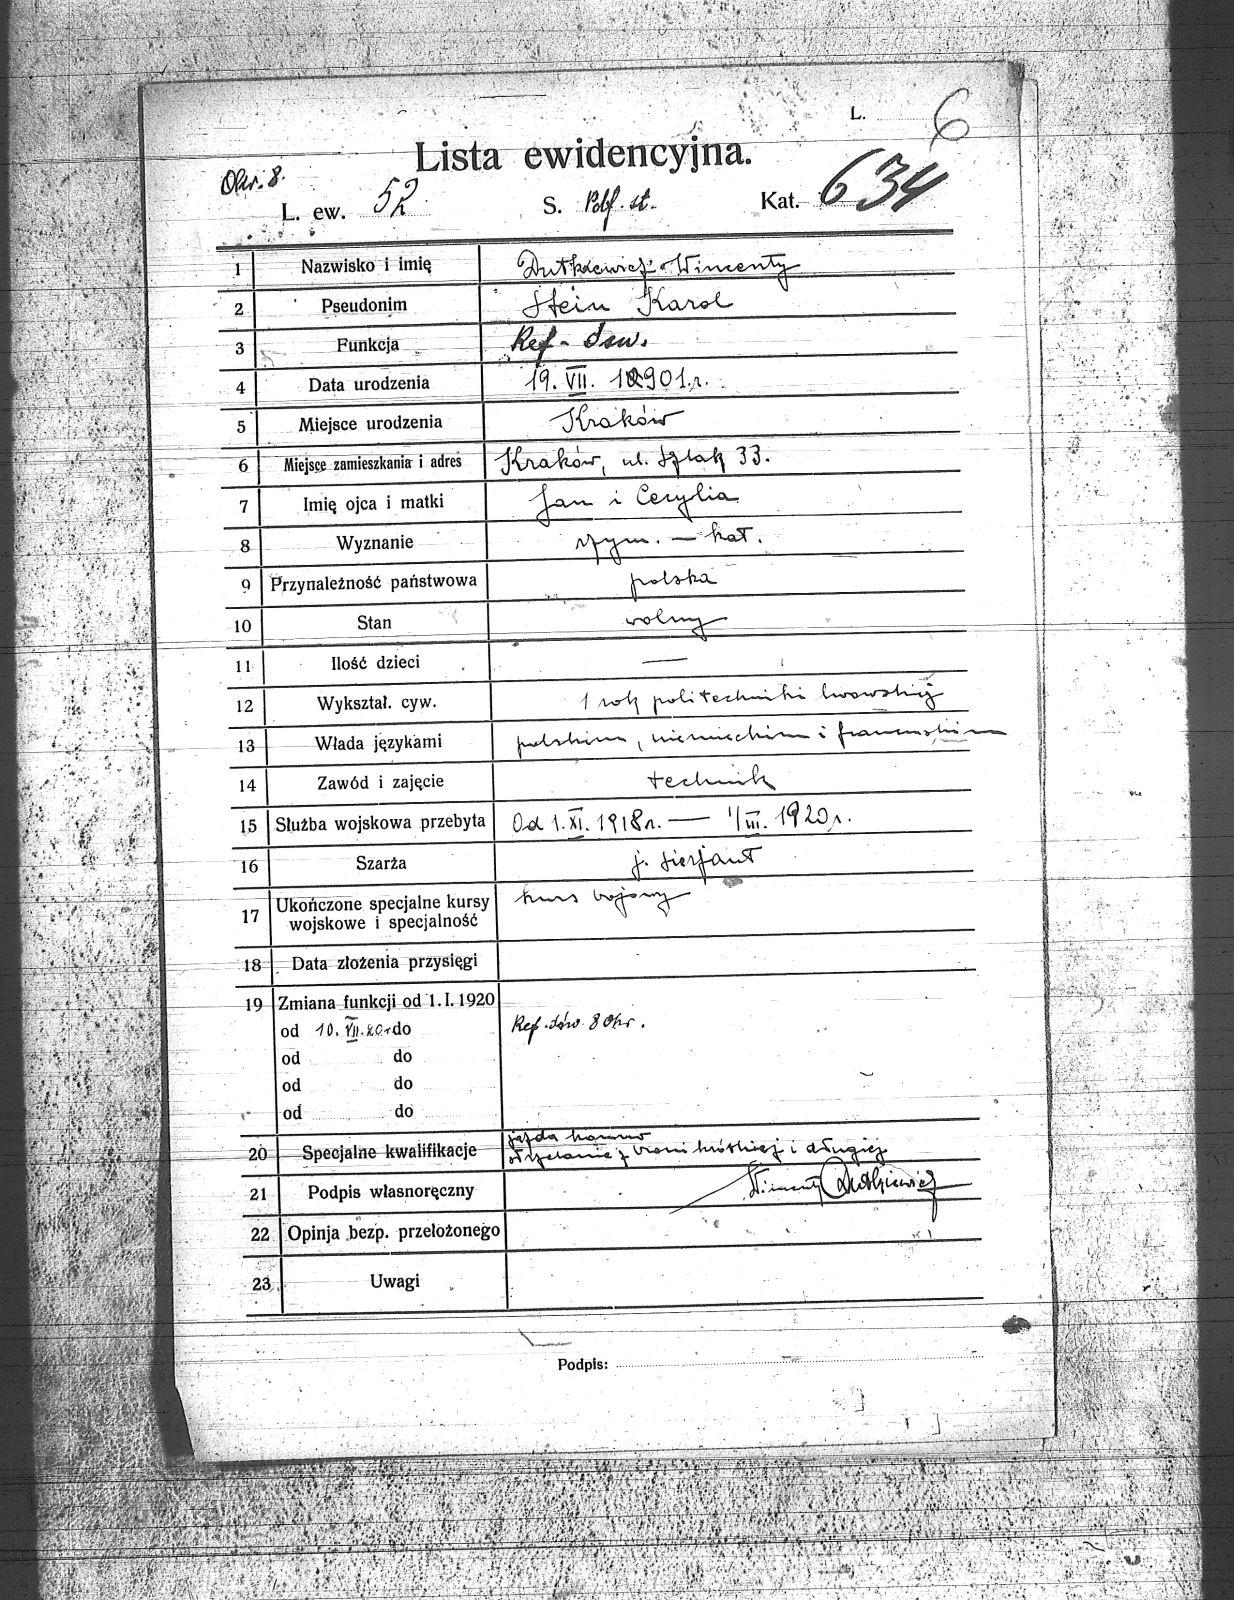 L. 6
Lista ewidencyjna.
Okr. 8.
L. ew. 52 S. Kat. 634
1 Nazwisko i imię Dutkiewicz Wincenty
2 Pseudonim Stein Karol
3 Funkcja Ref.
4 Data urodzenia 19. VII. 1901.r.
5 Miejsce urodzenia Kraków
6 Miejsce zamieszkania i adres Kraków, ul. Szlak 33.
7 Imię ojca i matki Jan i Cecylia
8 Wyznanie rzym. — kat.
9 Przynależność państwowa polska
10 Stan wolny
11 Ilość dzieci —
12 Wykształ. cyw. 1 rok politechniki lwowskiej
13 Włada językami polskim, niemieckim i francuskim
14 Zawód i zajęcie technik
15 Służba wojskowa przebyta Od 1. XI. 1918 r. — 1/III. 1920 r.
16 Szarża sierżant
17 Ukończone specjalne kursy wojskowe i specjalność kurs
18 Data złożenia przysięgi
19 Zmiana funkcji od 1. I. 1920
od 10. VII. 20 r do Ref. 8 Okr.
od do
od do
od do
20 Specjalne kwalifikacje jazda konno
strzelanie z broni krótkiej i długiej
21 Podpis własnoręczny Wincenty Dutkiewicz
22 Opinja bezp. przełożonego
23 Uwagi
Podpis: